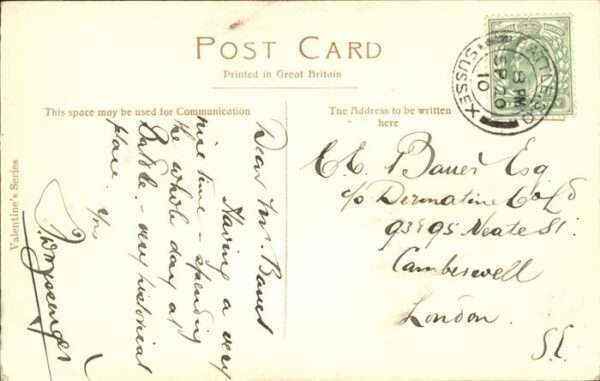 POST CARD
Printed in Great Britain
This space may be used for Communication
The Address to be written
here
Valentine's Series
BATTLE S.O
8 PM
SP 20
10
SUSSEX
Dear Mr. Bauer
Having a very
nice time - spending
the whole day at
Battle - very historical
place.
C. E. Bauer Esq
c/o Dermatine Co Ld
93 & 95 Neate St.
Camberwell
London.
S.E.